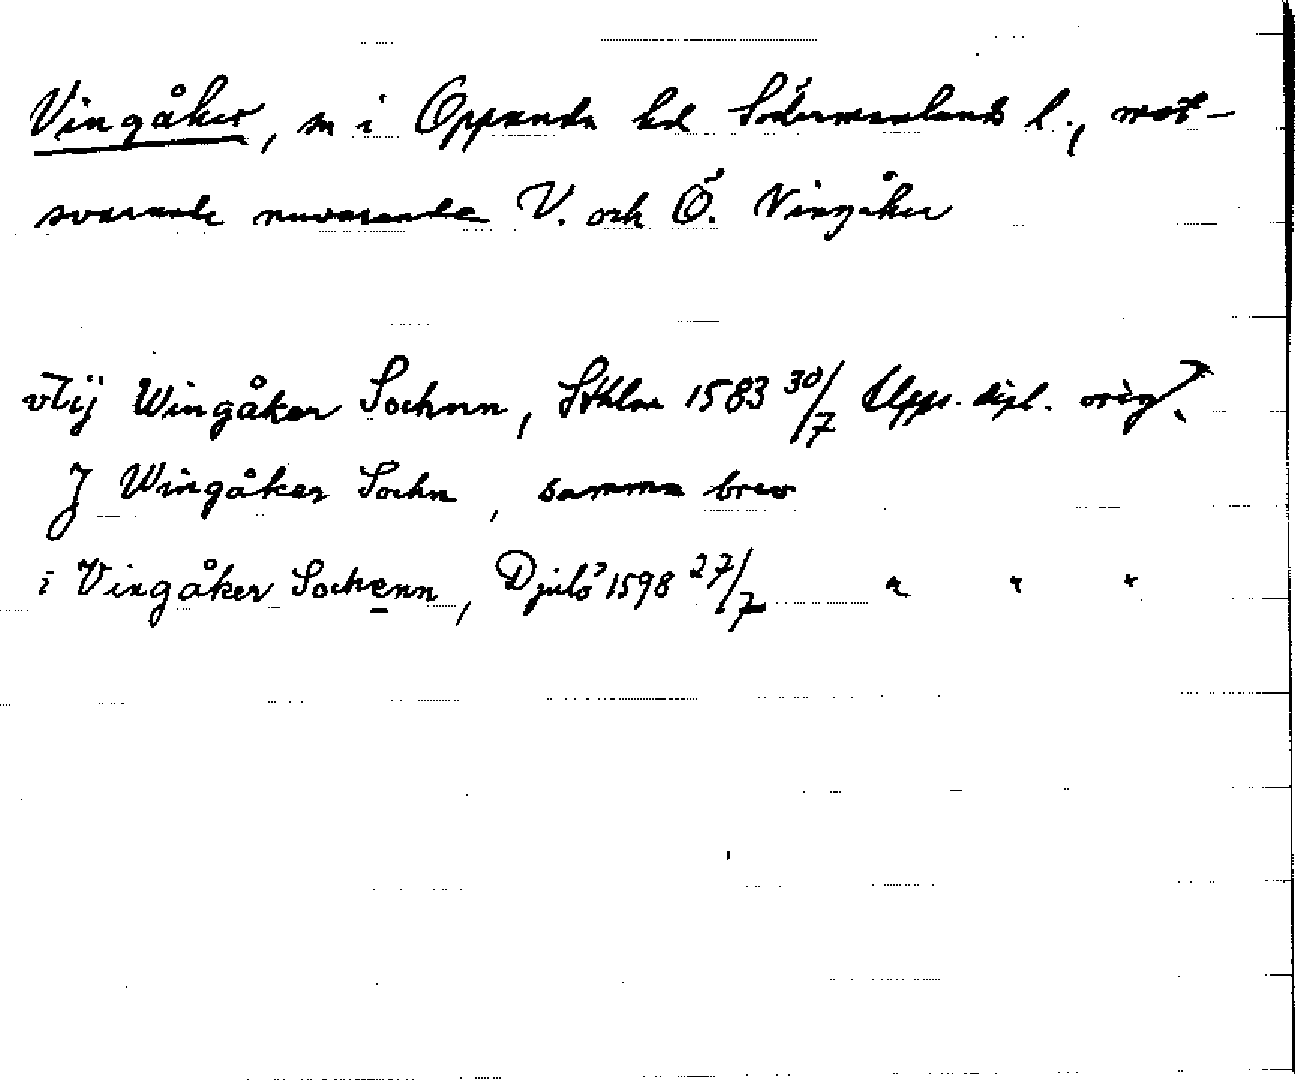 Vingåker, sn i Oppunda hd Södermanlands l., mot-
svarande nuvarande V. och Ö. Vingåker
vtij Wingåker Sochnn, Sthlm 1583 30/7 Upps. dipl. orig.
J Wingåker Sochn, samma brev
i Vingåker Sochenn, Djulö 1598 27/7 " " "